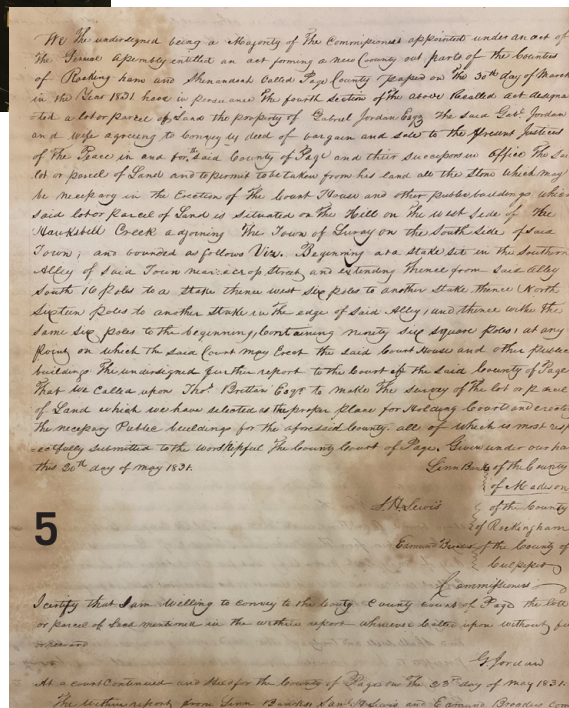 We the undersigned being a Majority of the Commissioners appointed under an act of
the General Assembly entitled an act forming a new County out parts of the Counties
of Rocking ham and Shenandoah Called Page County passed on the 30th day of March
in the Year 1831 have in persuance the fourth section of the above Recalled act designa
ted a lot or parcel of Land the porperty of Gabriel Jordan Esqr the said Gabl Jordan
and wife agreeing to convey by deed of bargain and sale to the present Justices
of the Peace in and for the said County of Page and their successors in office the Said
lot or parcel of Land and to permit to be taken from his land all the Stone which may
be necessary in the Erection of the Court House and other public buildings, which
said lot or Parcel of Land is situated on the Hill on the West Side of the
Hawksbill Creek ajoining the Town of Luray on the South Side of said
Town, and bounded as follows Viz. Beginning at a Stake set in the Southern
Alley of Said Town near across Street and extending thence from Said Alley
South 16 Poles to a Stake thence west Six poles to another stake thence North
Sixteen Poles to another Stake in the edge of Said Alley, and thence with the
same six poles to the beginning, Containing ninety six square Poles, at any
Point on which the said Court may Erect the said Court House and other public
buildings. The undersigned further report to the Court of the Said County of Page
that we Called upon Thos. Brittan Esqr. to make the survey of the lot or parcel
of Land which we have selected as the proper place for Holding Courts and erecting
the necessary Public buildings for the aforesaid County. all of which is most resp
ectfully submitted to the worshipful the County Court of Page. Given under our ha
this 20th day of May 1831.
Linn Banks of the County
of Madison
S. H. Lewis of the County
of Rockingham
5
Edmund of the County of
Culpeper
Commissioners
I certify that I am Willing to convey to the County Court of Page the lott
or parcel of Land mentioned in the within report whenever Called upon without
or reward
G Jordan
At a court Continued and Held for the County of Page on the 23rd day of May 1831.
The Within report from Linn Banks, Saml H Lewis and Edmund Broadus Com